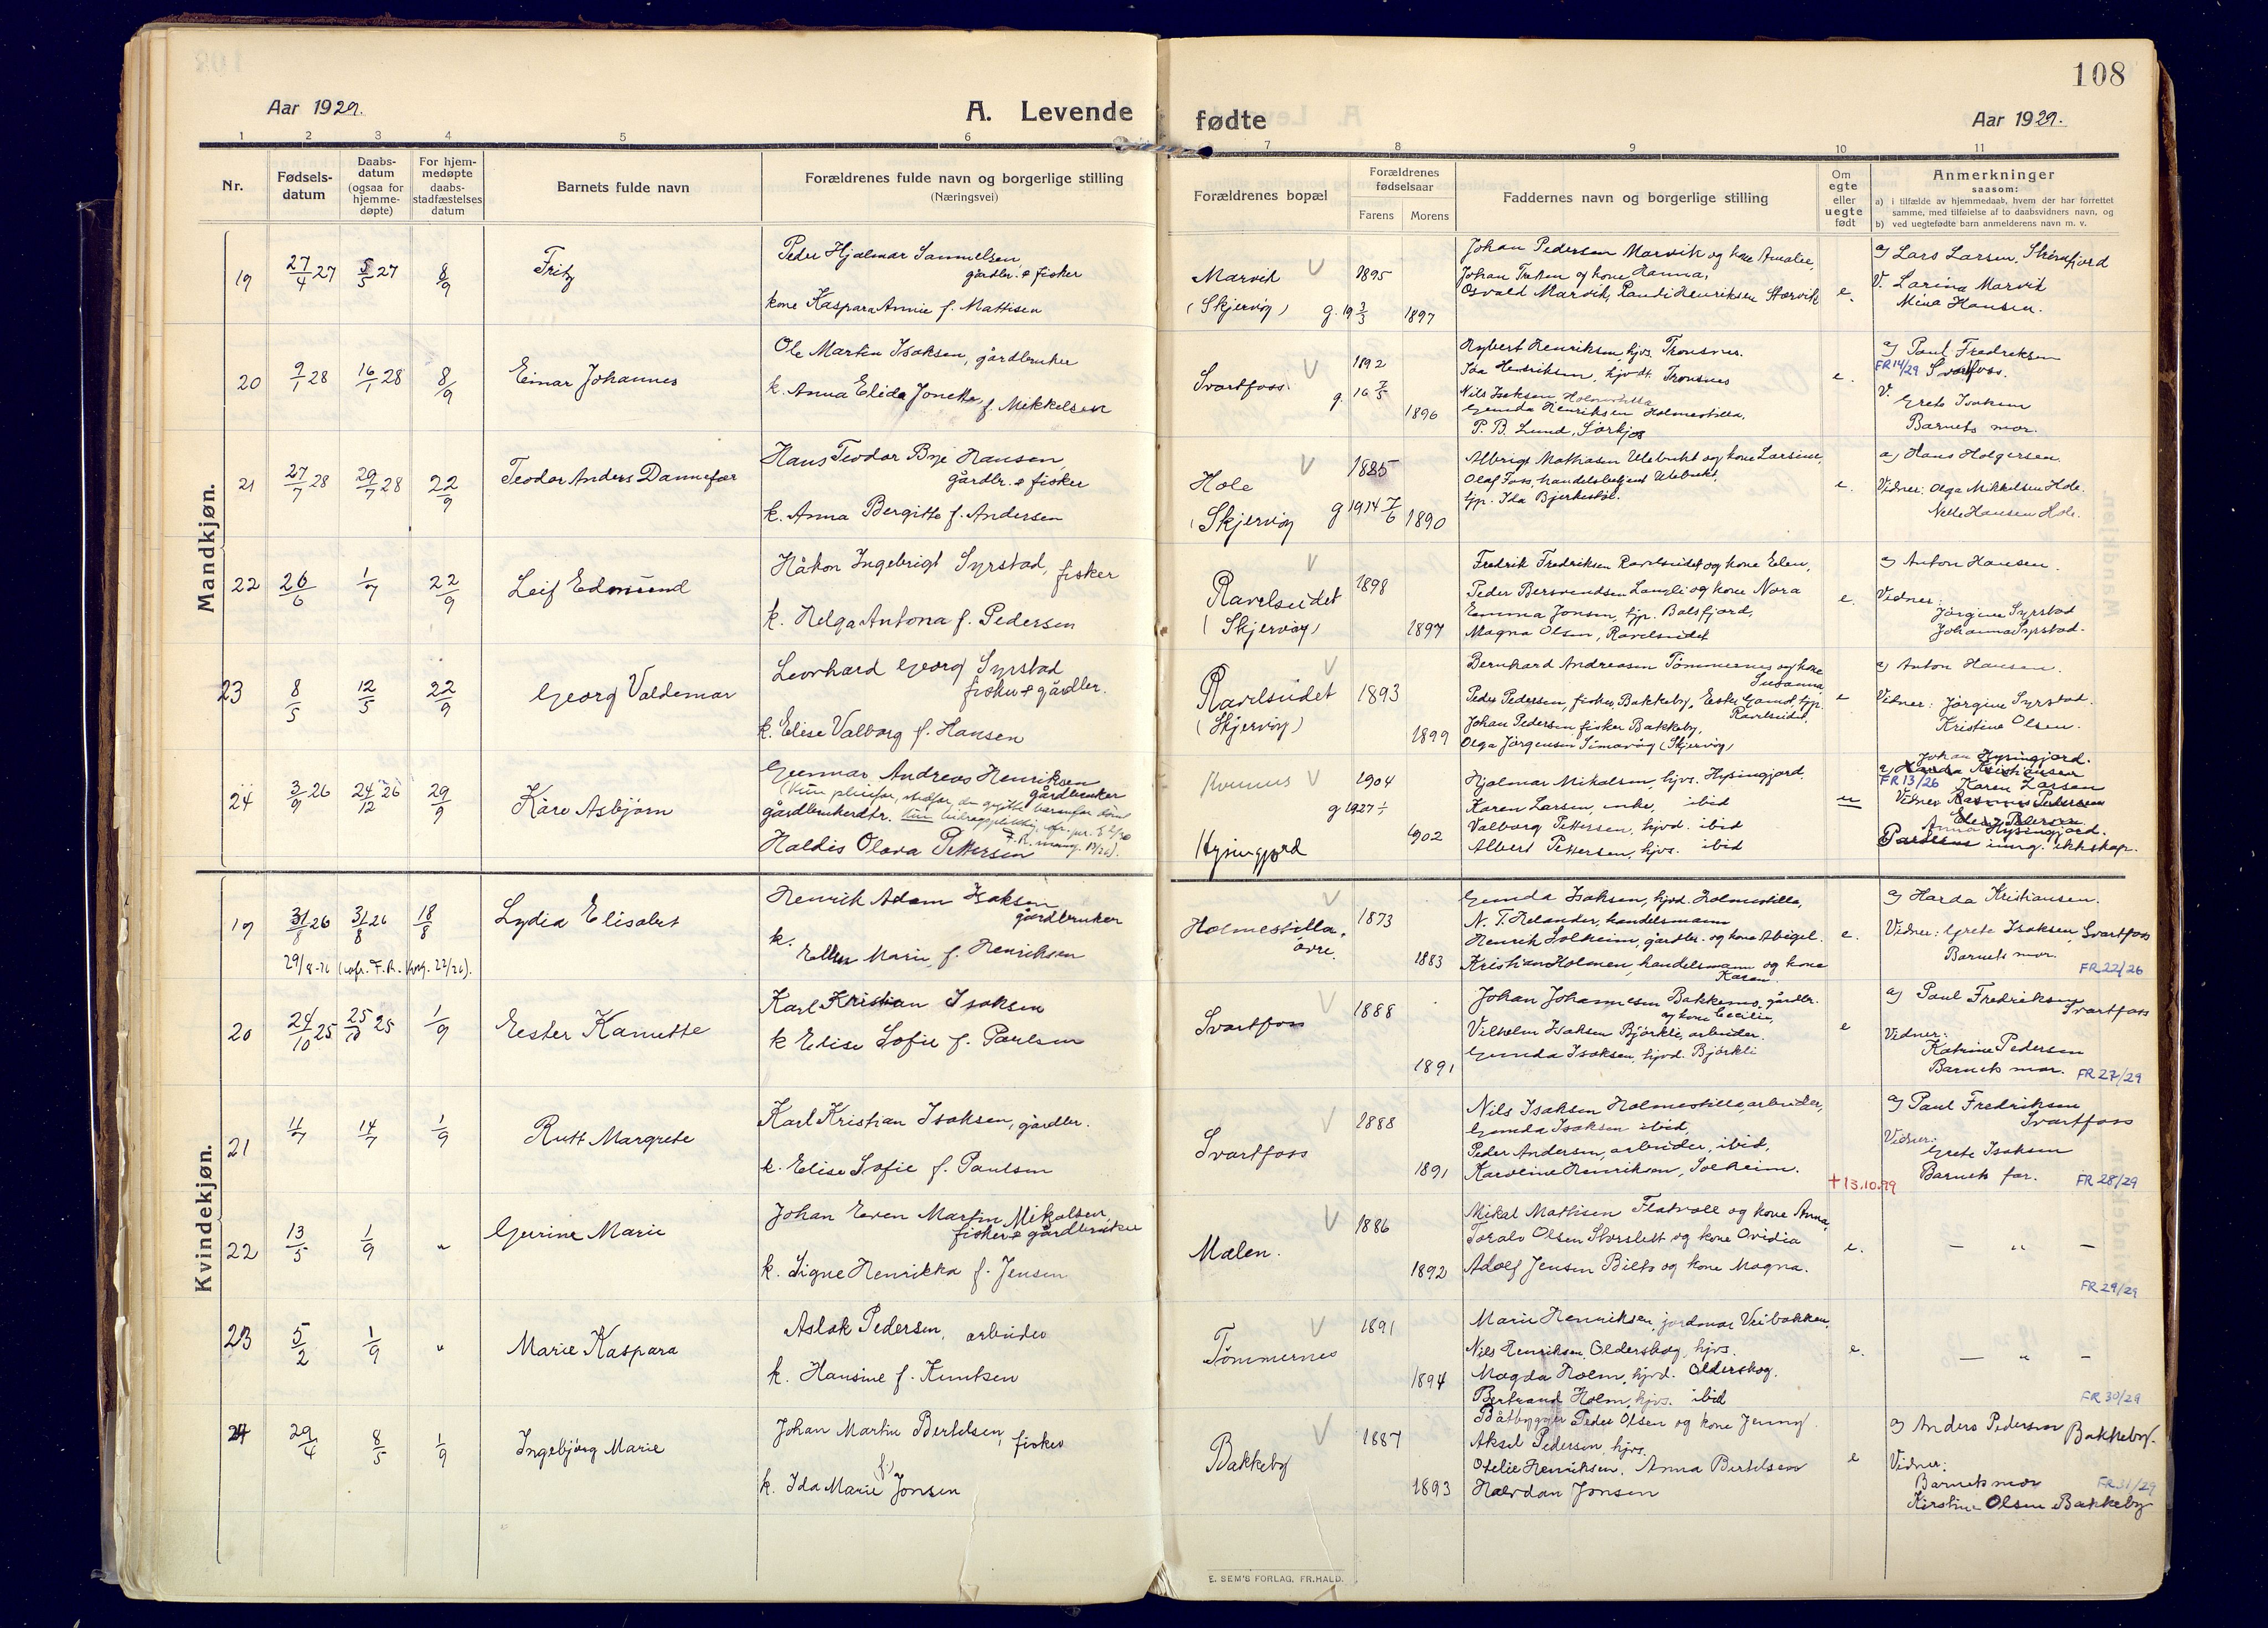 108
Aar 1929.
A. Levende
fødte
Aar 1929.
1 2 3 4 5 6 7 8 9 10 11
Nr.
Fødsels-
datum
Daabs-
datum
(ogsaa for
hjemme-
døpte)
For hjem-
medøpte
daabs-
stadfæstelses
datum
Barnets fulde navn
Forældrenes fulde navn og borgerlige stilling
(Næringsvei)
Forældrenes bopæl
Forældrenes
fødselsaar
Farens Morens
Faddernes navn og borgerlige stilling
Om
egte
eller
uegte
født
Anmerkninger
saasom:
a) i tilfælde av hjemmedaab, hvem der har forrettet
samme, med tilføielse af to daabsvidners navn, og
b) ved uegtefødte barn anmelderens navn m. v.
Mandkjøn.
19 27/4 27 5/5 27 8/9 Fritz
Peder Hjalmar Samuelsen,
gårdbr. & fisker
kone Kaspara Annie f. Mattisen
Marvik
(Skjervøy) g. 19 3/3
1895
1897
Johan Pedersen Marvik og kone Amalie,
Johan og kone Hanna,
Osvald Marvik, Henriksen Storvik
e.
a) Lars Larsen,
V. Larina Marvik
Mina Hansen.
20 9/1 28 16/1 28 8/9 Einar Johannes
Ole Martin Isaksen, gårdbruker
k. Anna Elida Jonette f. Mikkelsen
Svartfoss
g. 16 7/5
1892
1896
Henriksen, hjvs. Tronsnes.
Henriksen, hjvdt. Tronsnes
Nils Isaksen, Holmestilla
Gunda Henriksen Holmestilla.
P. B. Lund, Sørkjos
e.
a) Paul Fredriksen
FR 14/29 Svartfoss.
V. Grete Isaksen
Barnets mor.
21 27/7 28 29/7 28 22/9 Teodor Anders Dannefær
Hans Teodor Bye Hansen,
gårdbr. & fisker
k. Anna Bergitte f. Andersen
Hole
(Skjervøy g 1914 7/6
1885
1890
Albrigt Mathisen Ulebukt og kone Larsine,
Olaf Foss, handelsbetjent Ulebukt,
tjp. Ida
e.
a) Hans Holgersen.
Vidner: Olga Mikkelsen Hole.
Nelle Hansen Hole.
22 26/6 1/7 22/9 Leif Edmund
Håkon Ingebrigt Syrstad, fisker
k. Helga Antona f. Pedersen
Ravelseidet
(Skjervøy)
1898
1897
Fredrik Fredriksen Ravelseidet og kone Elen,
Peder Bersvendsen Langli og kone Nora
Emma Jonsen, tjp. Balsfjord,
Magna Olsen, Ravelseidet
e.
a) Anton Hansen.
Vidner:
Jørgine Syrstad
Johanna Syrstad.
23 8/5 12/5 22/9 Georg Valdemar
Leonhard Georg Syrstad
fisker & gårdbr.
k. Elise Valborg f. Hansen
Ravelseidet
(Skjervøy)
1893
1899
Bernhard Andreasen Tømmernes og kone
Susanna,
Peder Pedersen, fisker, Bakkeby, tjp.
Ravelseidet,
Johan Pedersen fisker Bakkeby,
Olga Jørgensen Simavåg (Skjervøy)
e
a) Anton Hansen.
Vidner: Jørgine Syrstad.
Kristine Olsen.
24 3/9 26 24/12 26 29/9 Kåre Asbjørn
Gunnar Andreas Henriksen
gårdbruker
gårdbrukerdtr.
Haldis Olava Pettersen
Kvænnes
g 1927
Hysingjord
1904
1902
Hjalmar Mikalsen, hjvs. Hysingjord.
Karen Larsen, enke, ibid
Valborg Pettersen, hjvd. ibid
Albert Pettersen, hjvs. ibid
u
Johan Hysingjord.
a)
FR 13/26 Karen Larsen
Vidner
Anna Hysingjord.
inng. ekteskap.
Kvindekjøn.
19 31/8 26 31/8 26 18/8 Lydia Elisabet
29/8-26 (cfr. F.R. Kvg. 22/26).
Henrik Adam Isaksen
gårdbruker
k. Ellen Marie, f. Henriksen
Holmestilla,
øvre.
1873
1883
Gunda Isaksen, hjvd. Holmestilla,
N. T. Helander, handelsmann
Henrik Solheim, gårdbr. og kone Abigel.
Kristian Holmen, handelsmann og kone
Karen
e.
a) Harda Kristiansen.
Vidner: Grete Isaksen, Svartfoss
Barnets mor.
FR 22/26
20 24/10 25 25/10 25 1/9 Ester Kanutte
Karl Kristian Isaksen
k Elise Sofie f. Paulsen
Svartfoss
1888
1891
Johan Johannesen Bakkemo, gårdbr.
og kone Cecilie,
Vilhelm Isaksen Bjørkli, arbeider.
Gunda Isaksen, hjvd. Bjørkli
e
a) Paul Fredriksen
Svartfoss
Vidner:
Katrine Pedersen
Barnets mor. FR 27/29
21 11/7 14/7 1/9 Rutt Margrete
Karl Kristian Isaksen, gårdbr.
k. Elise Sofie f. Paulsen
Svartfoss
1888
1891
Nils Isaksen Holmestilla, arbeider,
Gunda Isaksen ibid,
Peder Andersen, arbeider, ibid,
Karoline Henriksen, Solheim.
† 13.10.99
a) Paul Fredriksen
Svartfoss
Vidner:
Grete Isaksen
Barnets far. FR 28/29
22 13/5 1/9 " Gurine Marie
Johan Even Martin Mikalsen,
fisker & gårdbruker
k. Signe Henrikka f. Jensen
Mælen.
1886
1892
Mikal Mattisen Flatvoll og kone Anna,
Toralv Olsen Storslett og kone Ovidia
Adolf Jensen Bilto og kone Magna.
e.
— " —
FR 29/29
23 5/2 1/9 " Marie Kaspara
Aslak Pedersen, arbeider
k. Hansine f. Knutsen
Tømmernes
1891
1894
Marie Henriksen, jordmor Veibakken,
Nils Henriksen, Olderskog, hjvs.
Magda Holm, hjvd. Olderskog.
Bertrand Holm, hjvs. ibid
e.
— " —
FR 30/29
24 29/4 8/5 1/9 Ingebjørg Marie
Johan Martin Bertelsen, fisker
k. Ida Marie (f.) Jonsen
Bakkeby
1887
1893
Båtbygger Peder Olsen og kone Jenny.
Aksel Pedersen, hjvs.
Otelie Henriksen. Anna Bertelsen
Halvdan Jonsen
e
a) Anders Pedersen Bakkeby.
Vidner:
Barnets mor FR 31/29
Kirstine Olsen Bakkeby
E. SEM'S FORLAG, FR.HALD.